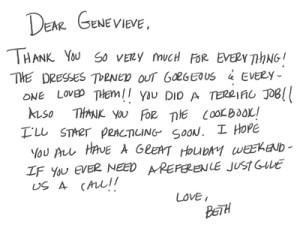 DEAR GENEVIEVE,
THANK YOU SO VERY MUCH FOR EVERYTHING!
THE DRESSES TURNED OUT GORGEOUS & EVERY-
ONE LOVED THEM!! YOU DID A TERRIFIC JOB!!
ALSO THANK YOU FOR THE COOKBOOK!
I'LL START PRACTICING SOON. I HOPE
YOU ALL HAVE A GREAT HOLIDAY WEEKEND-
IF YOU EVER NEED A REFERENCE JUST GIVE
US A CALL!!
LOVE,
BETH